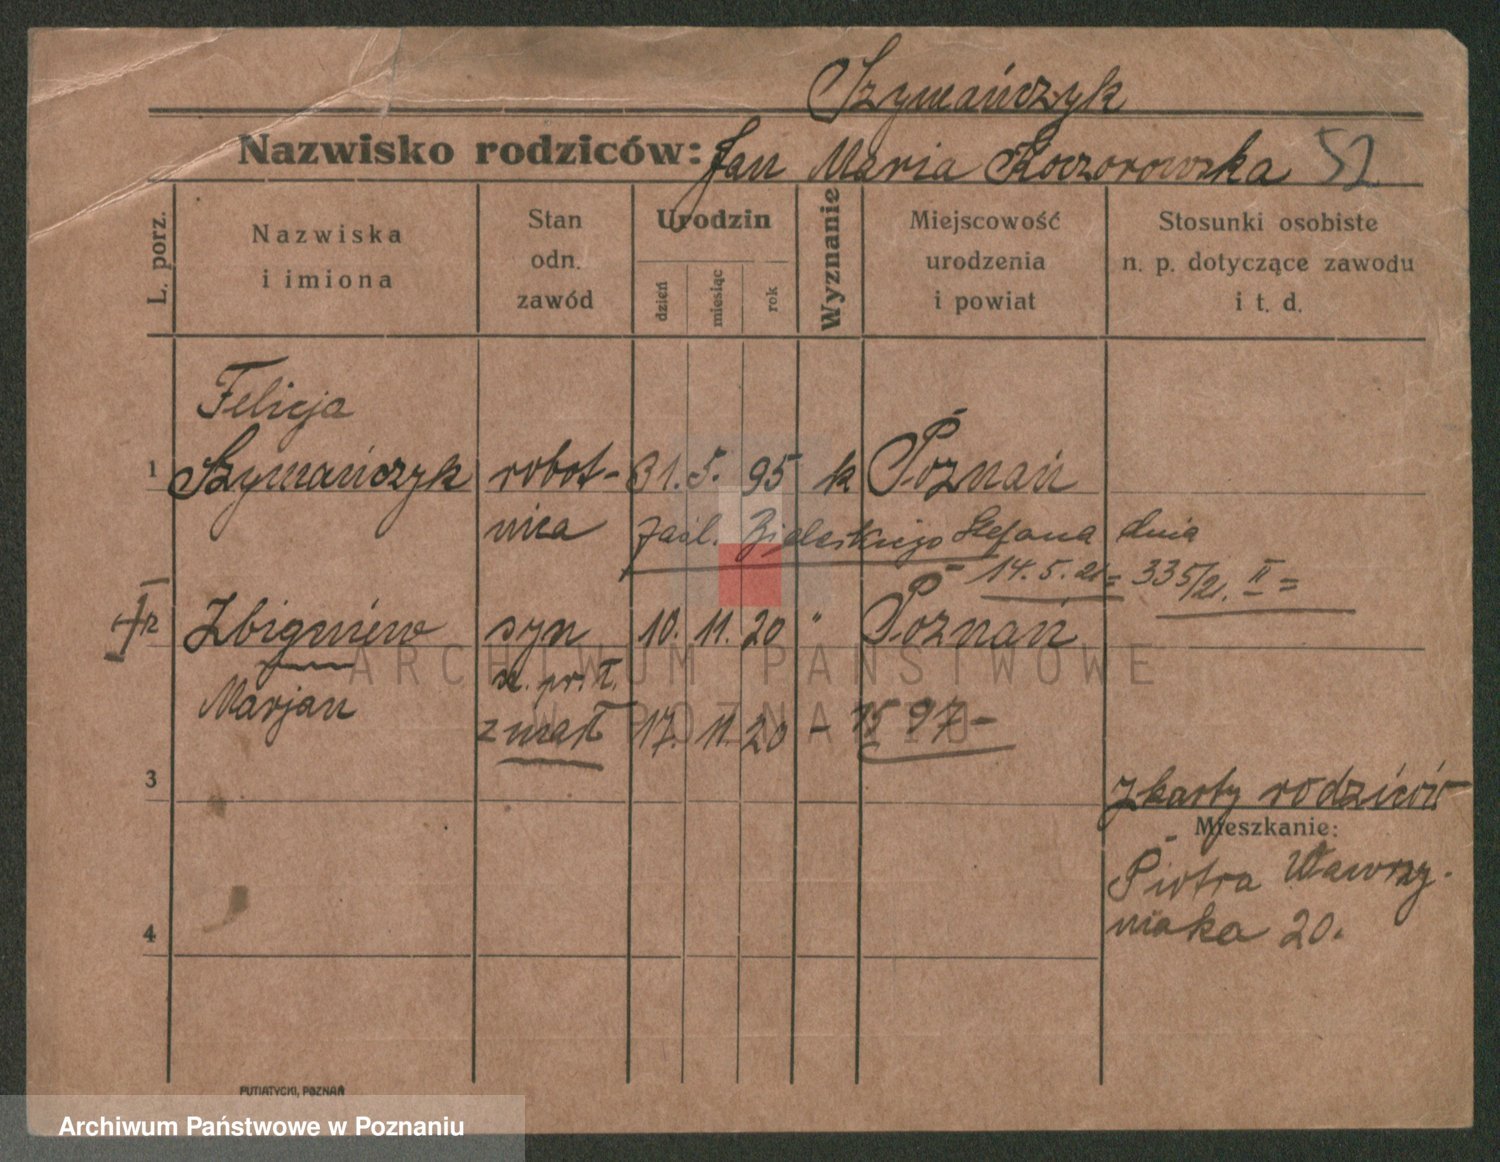 Szymańczyk
Nazwisko rodziców: Jan Maria Koczorowska 52
L. porz.
Nazwiska
i imiona
Stan
odn.
zawód
Urodzin
dzień
miesiąc
rok
Wyznanie
Miejscowość
urodzenia
i powiat
Stosunki osobiste
n. p. dotyczące zawodu
i t. d.
Felicja
1 Szymańczyk robot- 31. 5. 95 k Poznań
nica zaśl. Stefana dnia
14. 5. 21 = 335/21. II =
2 Zbigniew syn 10. 11. 20 " Poznań
Marjan
zmarł 17. 11. 20 - 1597-
3
z karty rodziców
Mieszkanie:
Piotra Wawrzy-
niaka 20.
4
PUTIATYCKI, POZNAŃ
ARCHIWUM PAŃSTWOWE
W POZNANIU
Archiwum Państwowe w Poznaniu